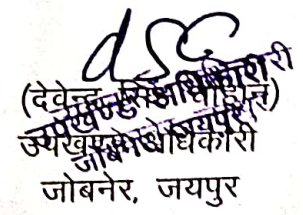 (देवेन्द्र सिंह चौहान)
उपखण्ड अधिकारी
जोबनेर, जयपुर
उपखण्ड अधिकारी
जोबनेर, जयपुर